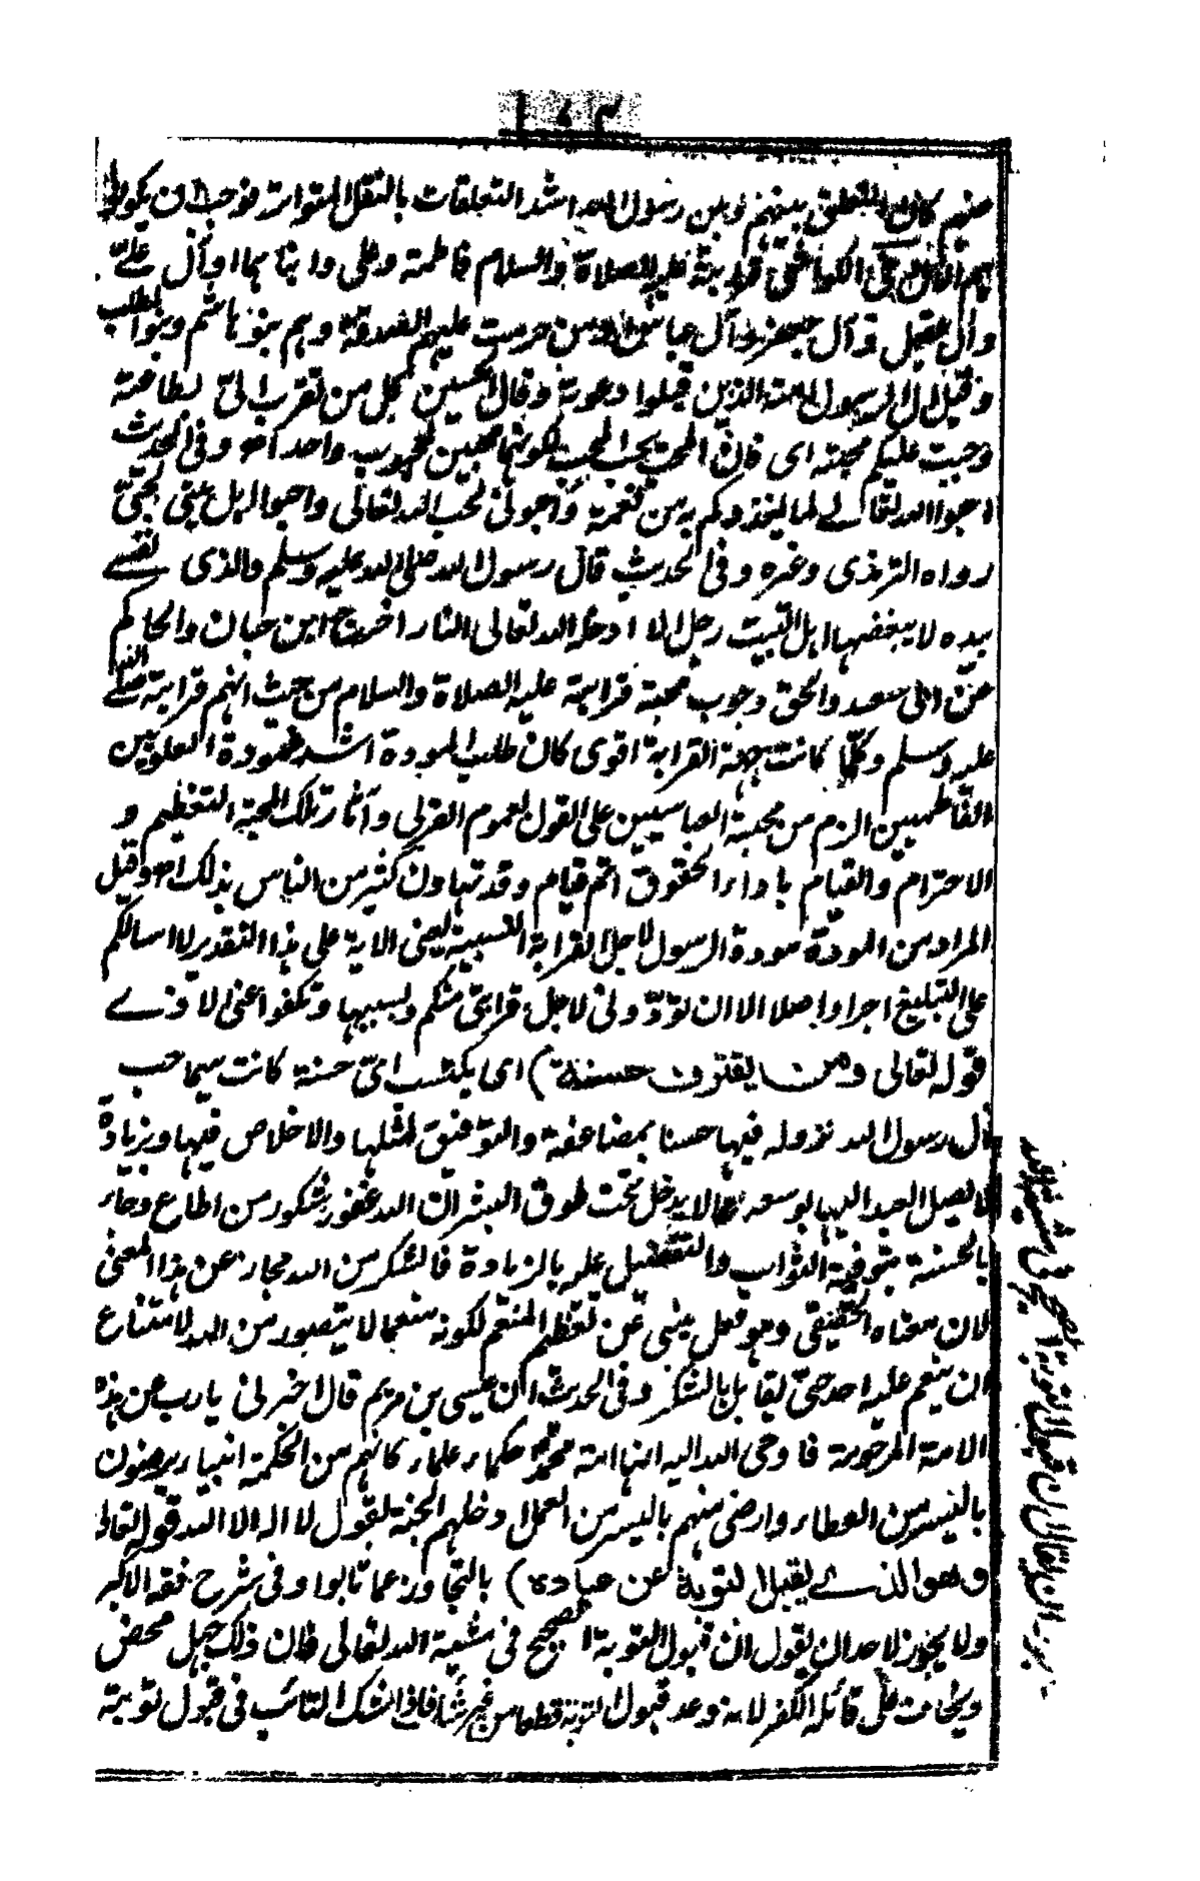 منهم كان التعلق بينهم وبين رسول الله اشد التعلقات بالنقل المتواتر فوجب ان يكونوا
هم الآل في الكواشي قرابته عليه الصلاة والسلام فاطمة وعلى وابناهما او آل على
وآل عقيل وآل جعفر وآل عباس او من حرمت عليهم الصدقة وهم بنو هاشم وبنو المطلب
وقيل آل الرسول امته الذين قبلوا دعوته وقال الحسين كل من تقرب الى لطاعته
وجبت عليكم محبته اى فان المحب يحب المحب لكونهما محبين لمحبوب واحد اهـ وفى الحديث
احبوا الله تعالى لما يغذوكم به من نعمة واحبونى لحب الله تعالى واحبوا اهل بيتى لحبى
رواه الترمذى وغيره وفى الحديث قال رسول الله صلى الله عليه وسلم والذى نفسے
بيده لا يبغضها اهل البيت رجل الا ادخله الله تعالى النار اخرج ابن حبان والحاكم
عن ابى سعيد والحق وجوب محبة قرابته عليه الصلاة والسلام من حيث انهم قرابته صلى الله
عليه وسلم وكلما كانت جهة القرابة اقوى كان طلب المودة اشد فمودة العلويين
الفاطميين الزم من محبة العباسيين على القول لعموم القربى وآثار تلك المحبة التعظيم و
الاحترام والقيام باداء الحقوق اتم قيام وقد تهاون كثير من الناس بذلك اهـ وقيل
المراد من المودة مودة الرسول لاجل القرابة النسبية يعنى الاية على هذا التقدير لا اسالكم
على التبليغ اجرا واصلا الا ان تودونى لاجل قرابتى منكم وبسببها وتكفوا عنى الاذے
قوله تعالى ومن يقترف حسنة) اى يكتسب اى حسنة كانت سيما حب
آل رسول الله نزد له فيها حسنا بمضاعفة والتوفيق لمثلها والاخلاص فيها وبزيادة
لا يصل العبد اليها بوسعه مما لا يدخل تحت طوق البشر ان الله غفور شكور من اطاع وجاء
بالحسنة بتوفية الثواب والتفضيل عليه بالزيادة فالشكر من الله مجاز عن هذا المعنى
لان معناه الحقيقى وهو فعل ينبى عن تعظيم المنعم لكونه منعما لا يتصور من الله لامتناع
ان ينعم عليه احد حتى يقابل بالشكر وفى الحديث ان عيسى بن مريم قال اخبرنى يارب عن هذه
الامة المرحومة فاوحى الله اليه انها امة محمد حكماء علماء كانهم من الحكمة انبياء يرضون
باليسير من العطاء وارضى منهم باليسير من العمل ادخلهم الجنة بقول لا اله الا الله قوله تعالى
وهو الذے يقبل التوبة عن عباده) بالتجاوز عما تابوا وفى شرح فقه الاكبر
ولا يجوز لاحد ان يقول ان قبول التوبة الصحيح فى مشية الله تعالى فان ذلك جهل محض
ويخاف على قائله الكفر لانه وعد قبول التوبة قطعا من غير شك فاذا شك التائب فى قبول توبته